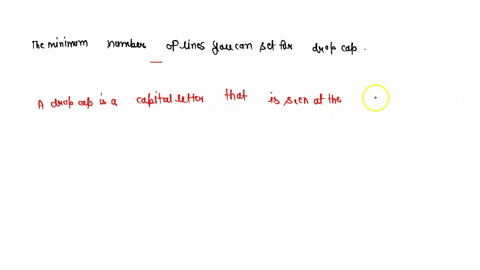 The minimum number of lines you can set for drop cap.
A drop cap is a capital letter that is seen at the